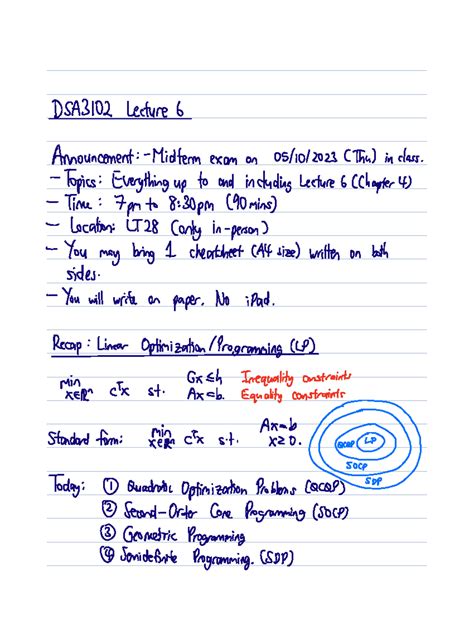 DSA3102 Lecture 6
Announcement: - Midterm exam on 05/10/2023 (Thu) in class.
- Topics: Everything up to and including Lecture 6 (Chapter 4)
- Time: 7pm to 8:30pm (90 mins)
- Location: LT28 (only in-person)
- You may bring 1 cheatsheet (A4 size) written on both
sides.
- You will write on paper. No iPad.
Recap: Linear Optimization/Programming (LP)
min x∈ℝⁿ cᵀx s.t. Gx ≤ h Inequality constraints
Ax = b. Equality constraints
Standard form: min x∈ℝⁿ cᵀx s.t. Ax = b
x ≥ 0.
QCQP LP
SOCP
SDP
Today: ① Quadratic Optimization Problems (QCQP)
② Second-Order Cone Programming (SOCP)
③ Geometric Programming
④ Semidefinite Programming. (SDP)